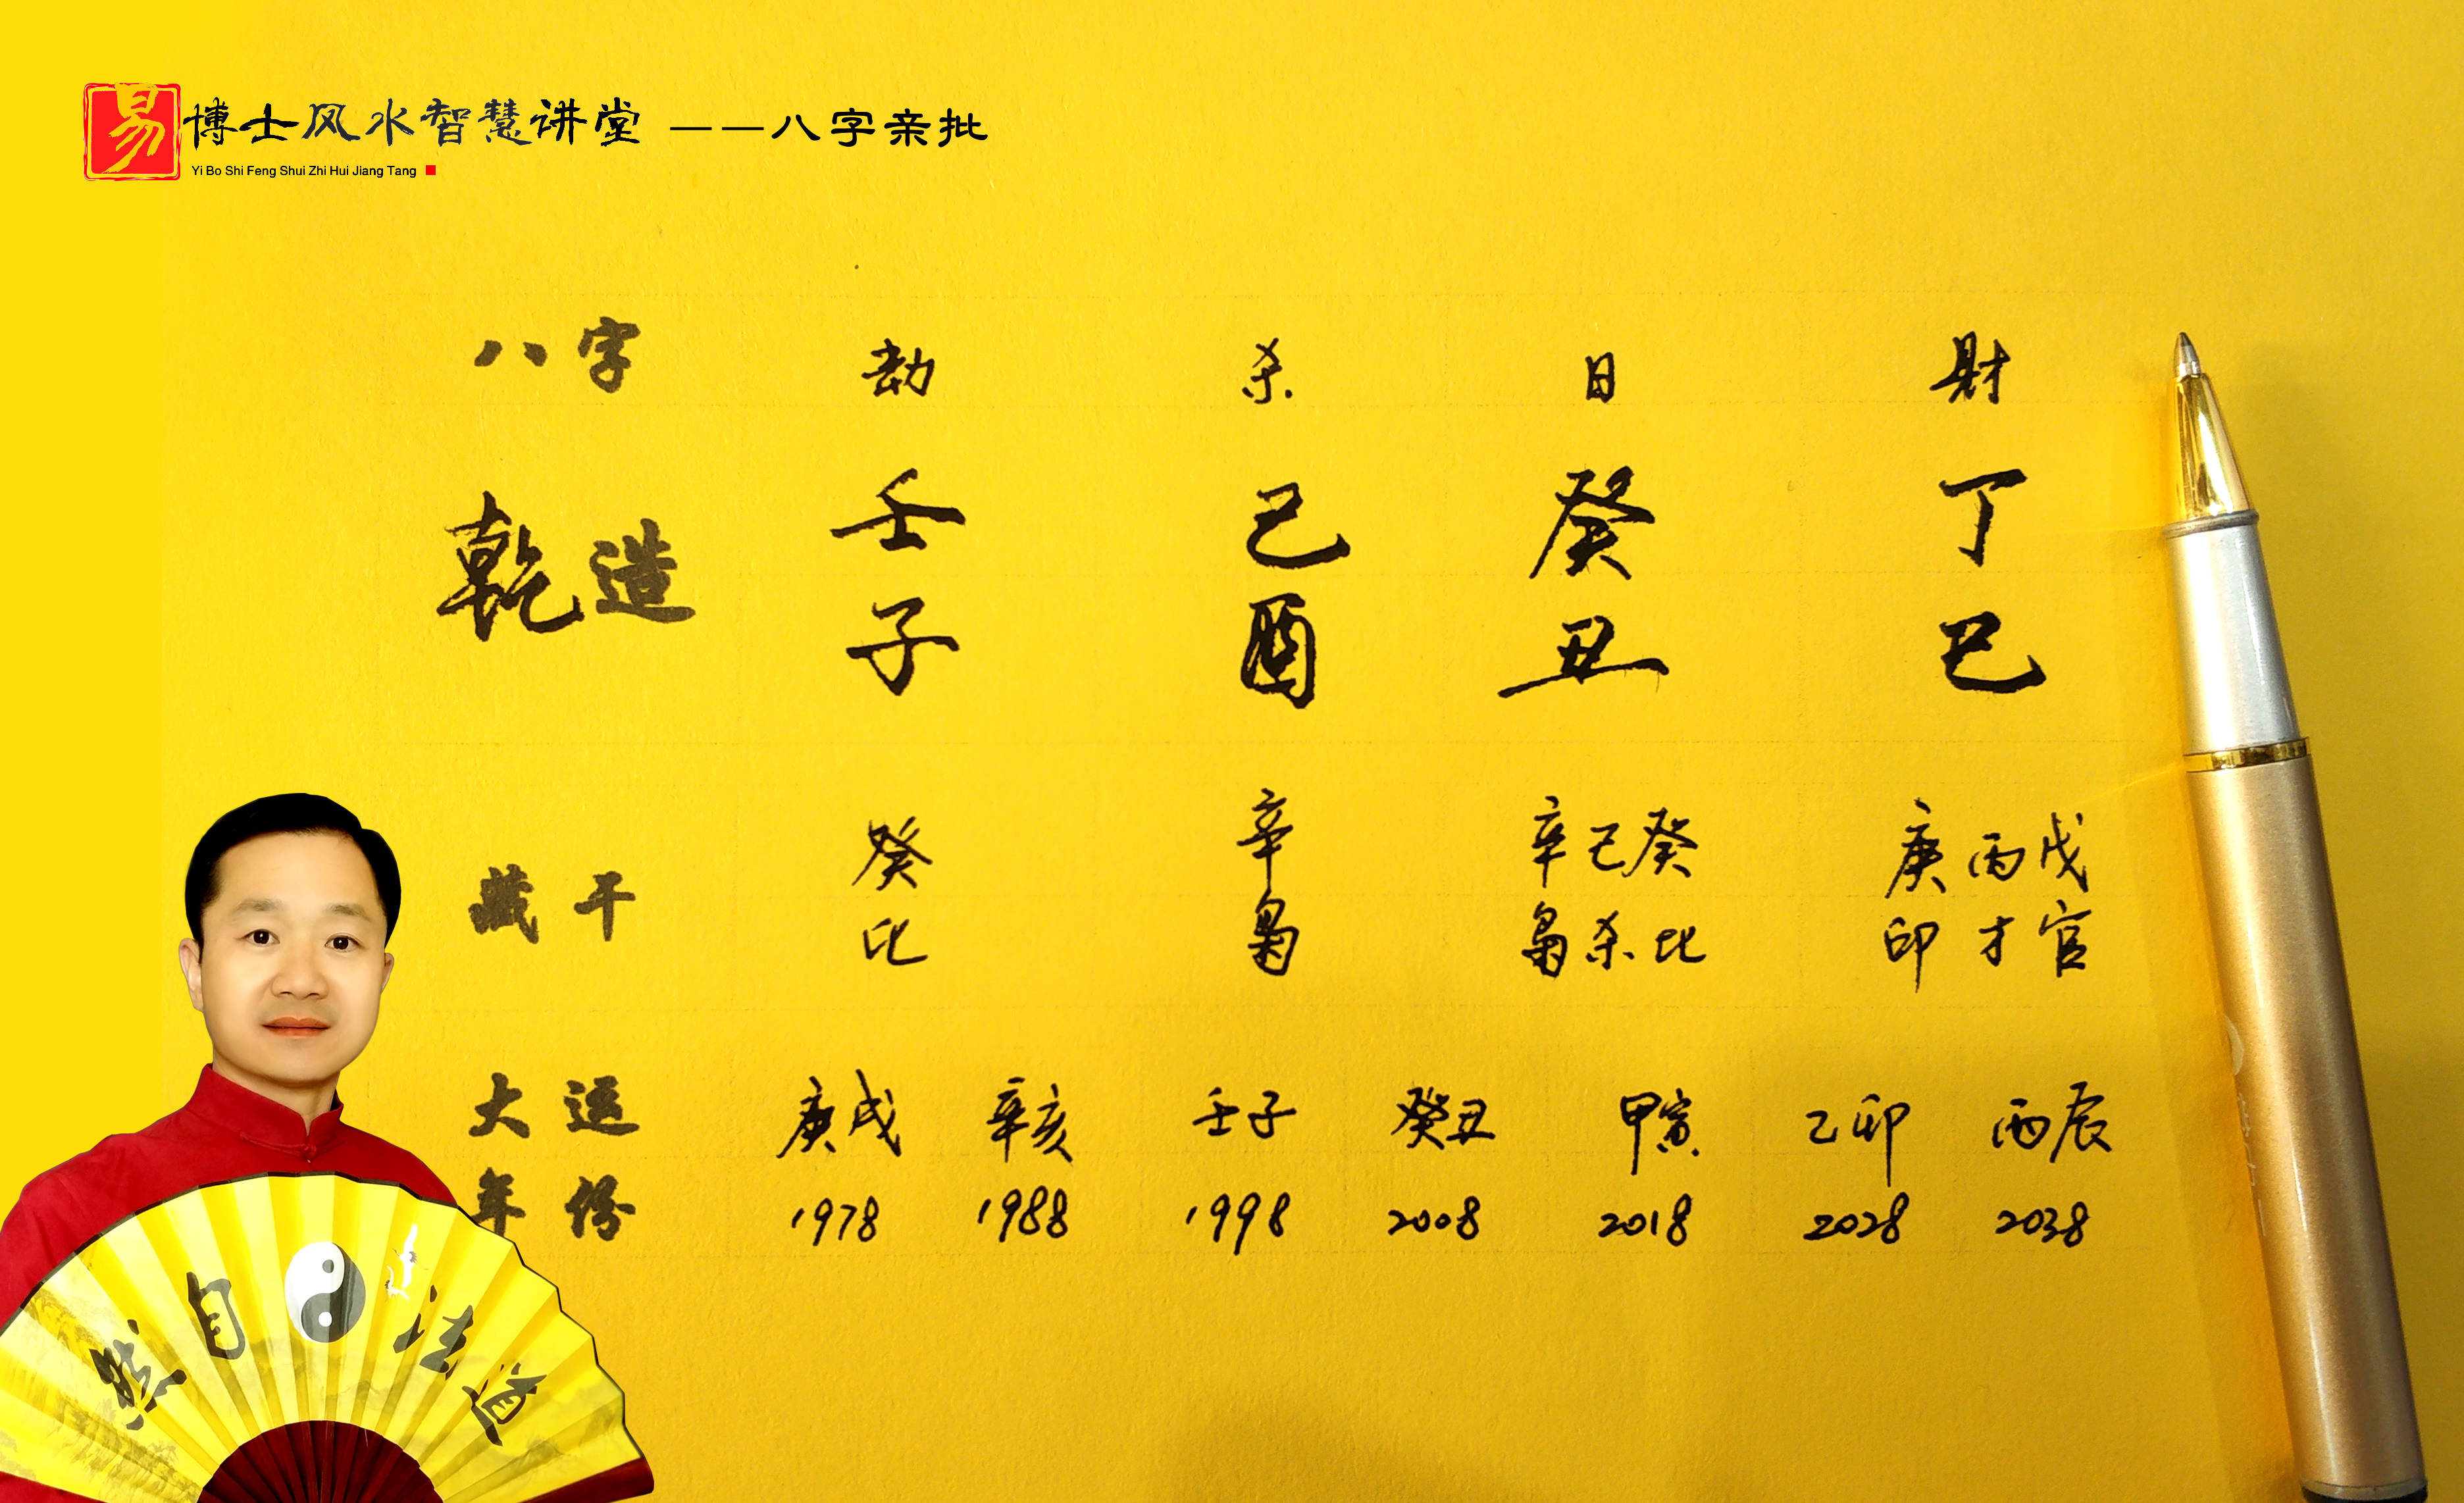 易博士风水智慧讲堂 ——八字亲批
Yi Bo Shi Feng Shui Zhi Hui Jiang Tang
八字 劫 杀 日 財
乾造 壬 己 癸 丁
子 酉 丑 巳
藏干 癸 辛 辛己癸 庚丙戊
比 枭 枭杀比 印才官
大运 庚戌 辛亥 壬子 癸丑 甲寅 乙卯 丙辰
年份 1978 1988 1998 2008 2018 2028 2038
然自法道